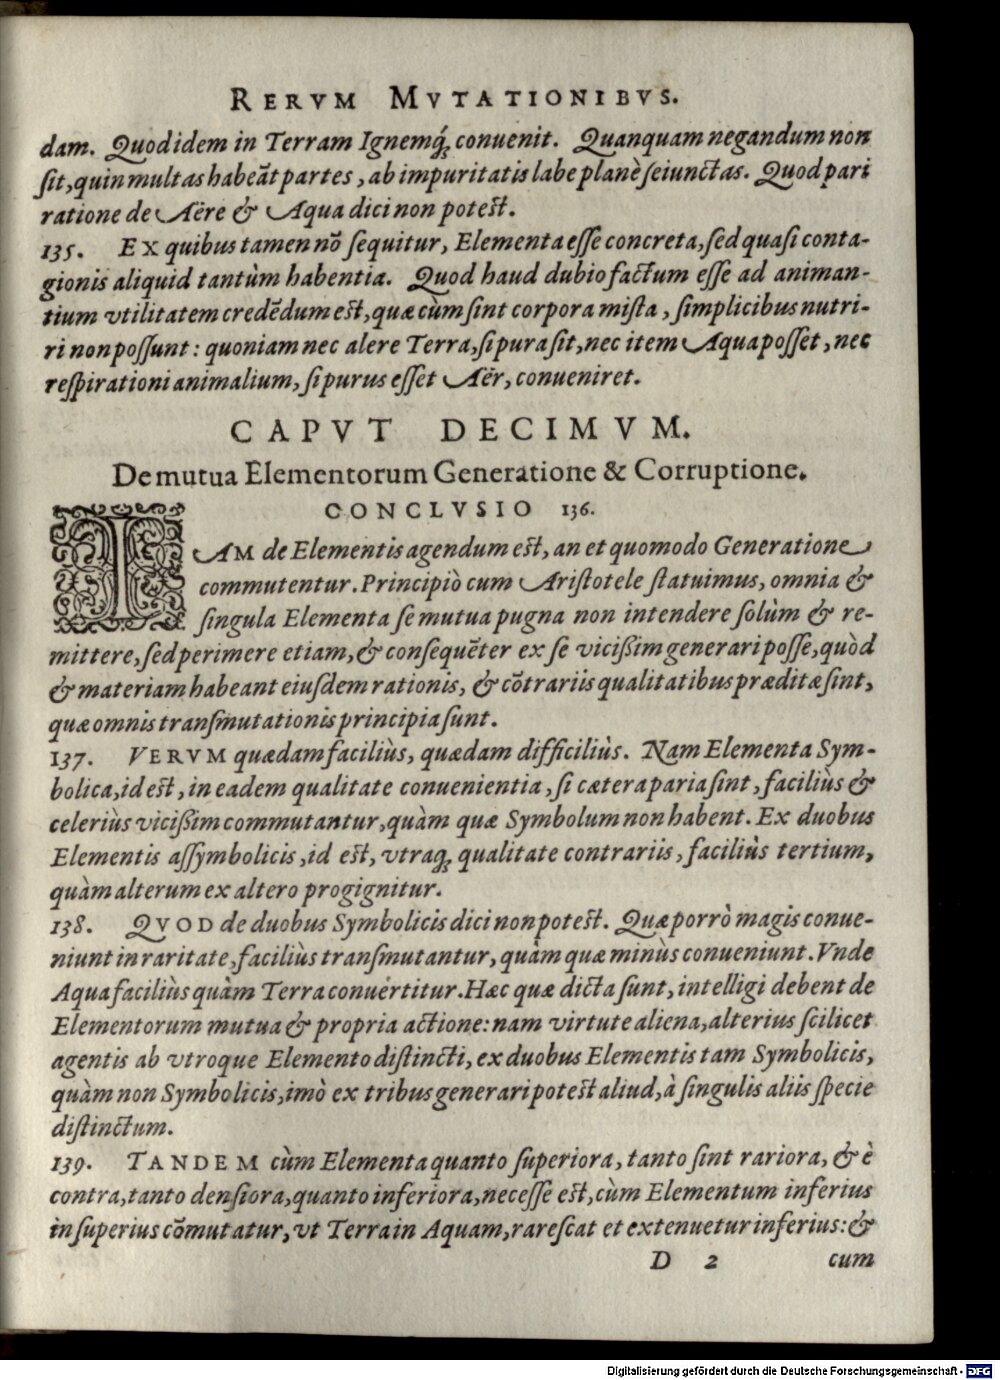 RERVM MVTATIONIBVS.
dam. Quod idem in Terram Ignemq́; conuenit. Quanquam negandum non
sit, quin multas habeāt partes, ab impuritatis labe planè seiunctas. Quod pari
ratione de Aëre & Aqua dici non potest.
135. EX quibus tamen nō sequitur, Elementa esse concreta, sed quasi conta-
gionis aliquid tantùm habentia. Quod haud dubio factum esse ad animan-
tium vtilitatem credēdum est, quæ cùm sint corpora mista, simplicibus nutri-
ri non possunt: quoniam nec alere Terra, si pura sit, nec item Aqua posset, nec
respirationi animalium, si purus esset Aër, conueniret.
CAPVT DECIMVM.
De mutua Elementorum Generatione & Corruptione.
CONCLVSIO 136.
IAM de Elementis agendum est, an et quomodo Generatione
commutentur. Principiò cum Aristotele statuimus, omnia &
singula Elementa se mutua pugna non intendere solùm & re-
mittere, sed perimere etiam, & consequēter ex se vicißim generari posse, quòd
& materiam habeant eiusdem rationis, & cōtrariis qualitatibus præditæ sint,
quæ omnis transmutationis principia sunt.
137. VERVM quædam faciliùs, quædam difficiliùs. Nam Elementa Sym-
bolica, id est, in eadem qualitate conuenientia, si cætera paria sint, faciliùs &
celeriùs vicißim commutantur, quàm quæ Symbolum non habent. Ex duobus
Elementis assymbolicis, id est, vtraq; qualitate contrariis, faciliùs tertium,
quàm alterum ex altero progignitur.
138. QVOD de duobus Symbolicis dici non potest. Quæ porrò magis conue-
niunt in raritate, faciliùs transmutantur, quàm quæ minùs conueniunt. Vnde
Aqua faciliùs quàm Terra conuertitur. Hæc quæ dicta sunt, intelligi debent de
Elementorum mutua & propria actione: nam virtute aliena, alterius scilicet
agentis ab vtroque Elemento distincti, ex duobus Elementis tam Symbolicis,
quàm non Symbolicis, imò ex tribus generari potest aliud, à singulis aliis specie
distinctum.
139. TANDEM cùm Elementa quanto superiora, tanto sint rariora, & è
contra, tanto densiora, quanto inferiora, necesse est, cùm Elementum inferius
in superius cōmutatur, vt Terra in Aquam, rarescat et extenuetur inferius: &
D 2 cum
Digitalisierung gefördert durch die Deutsche Forschungsgemeinschaft - DFG